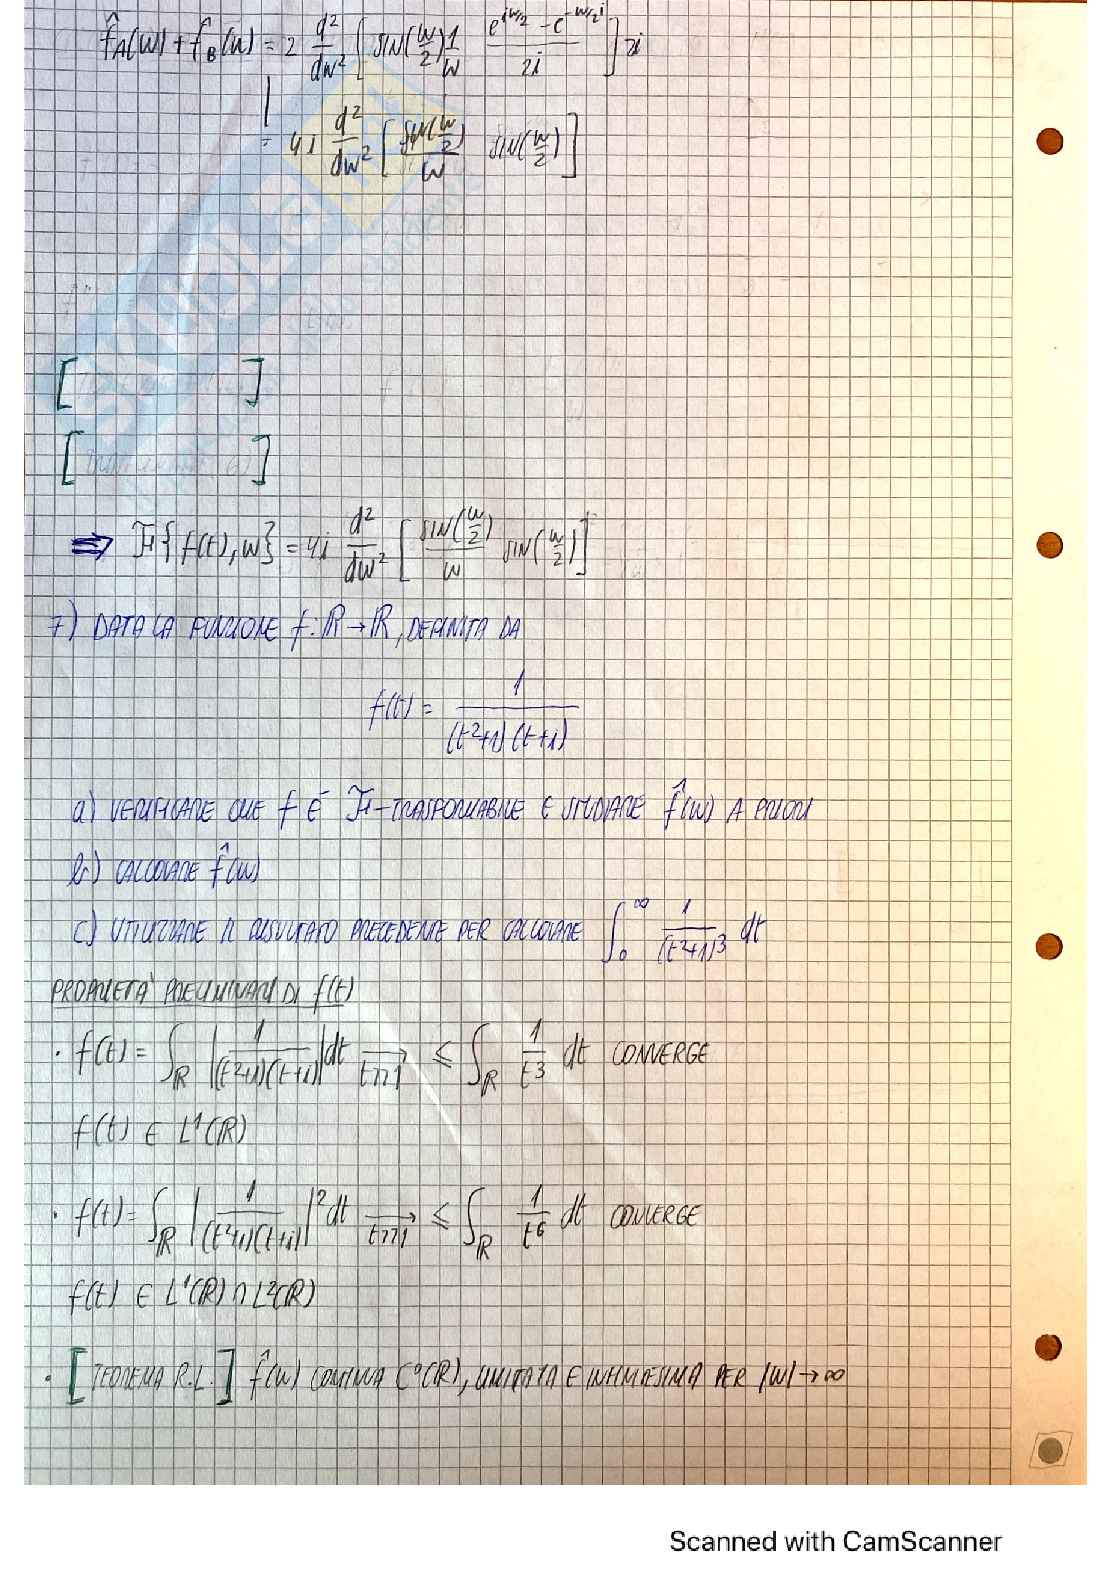 f̂_A(w) + f̂_B(w) = 2 d²/dw² [ sin(w/2) 1/w (e^{iw/2} - e^{-w/2 i})/2i ] 2i
= 4i d²/dw² [ sin(w/2)/w sin(w/2) ]
SKUOLA.NET
⇒ F{f(t), w} = 4i d²/dw² [ sin(w/2)/w sin(w/2) ]
7) DATA LA FUNZIONE f: ℝ → ℝ, DEFINITA DA
f(t) = 1/((t²+1)(t+i))
a) VERIFICARE CHE f È F-TRASFORMABILE E STUDIARE f̂(w) A PRIORI
b) CALCOLARE f̂(w)
c) UTILIZZARE IL RISULTATO PRECEDENTE PER CALCOLARE ∫₀^∞ 1/(t²+1)³ dt
PROPRIETÀ PRELIMINARI DI f(t)
· f(t) = ∫_ℝ |1/((t²+1)(t+i))| dt →_{t>>1} ≤ ∫_ℝ 1/t³ dt CONVERGE
f(t) ∈ L¹(ℝ)
· f(t) = ∫_ℝ |1/((t²+1)(t+i))|² dt →_{t>>1} ≤ ∫_ℝ 1/t⁶ dt CONVERGE
f(t) ∈ L¹(ℝ) ∩ L²(ℝ)
· [TEOREMA R.L.] f̂(w) CONTINUA C⁰(ℝ), LIMITATA E INFINITESIMA PER |w| → ∞
Scanned with CamScanner